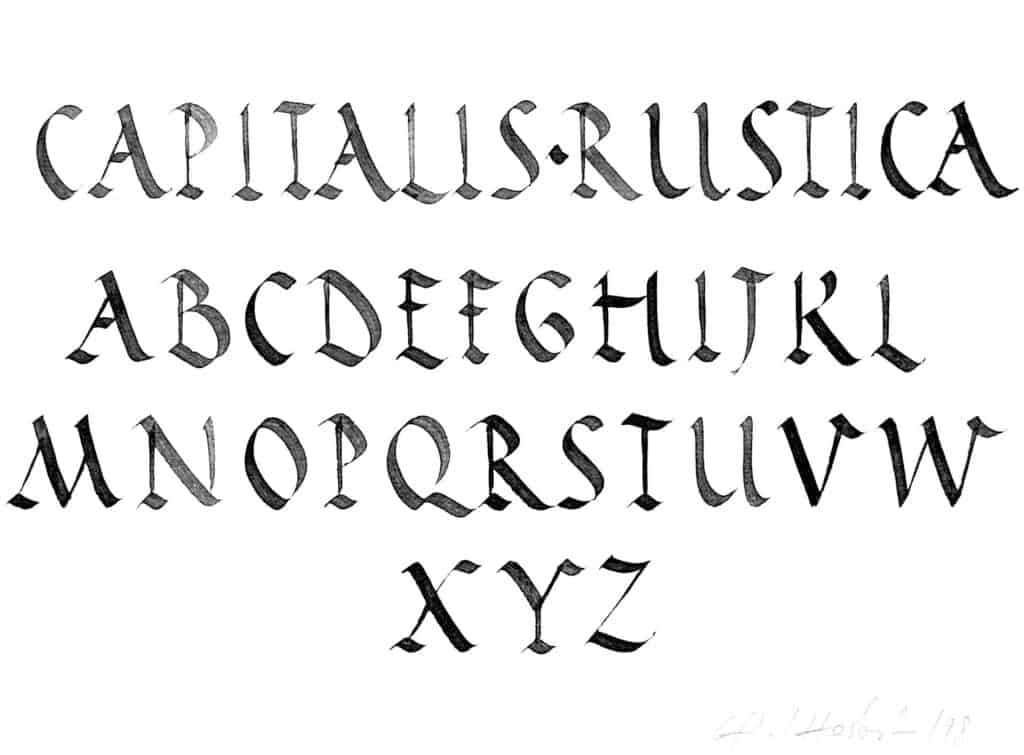 CAPITALIS·RUSTICA
ABCDEFGHIJKL
MNOPQRSTUVW
XYZ